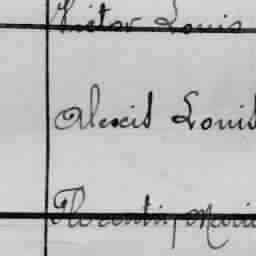 Victor Louis
Alexis Louis
Florentin, Marie